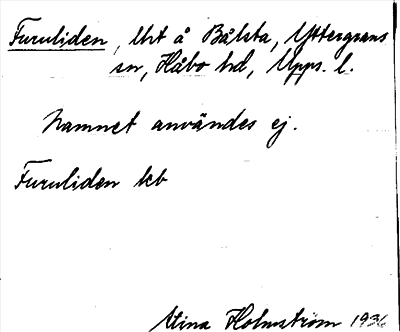 Furuliden, lht å Bålsta, Yttergrans
sn, Håbo hd, Upps. l.
Namnet användes ej.
Furuliden kb
Stina Holmström 1936